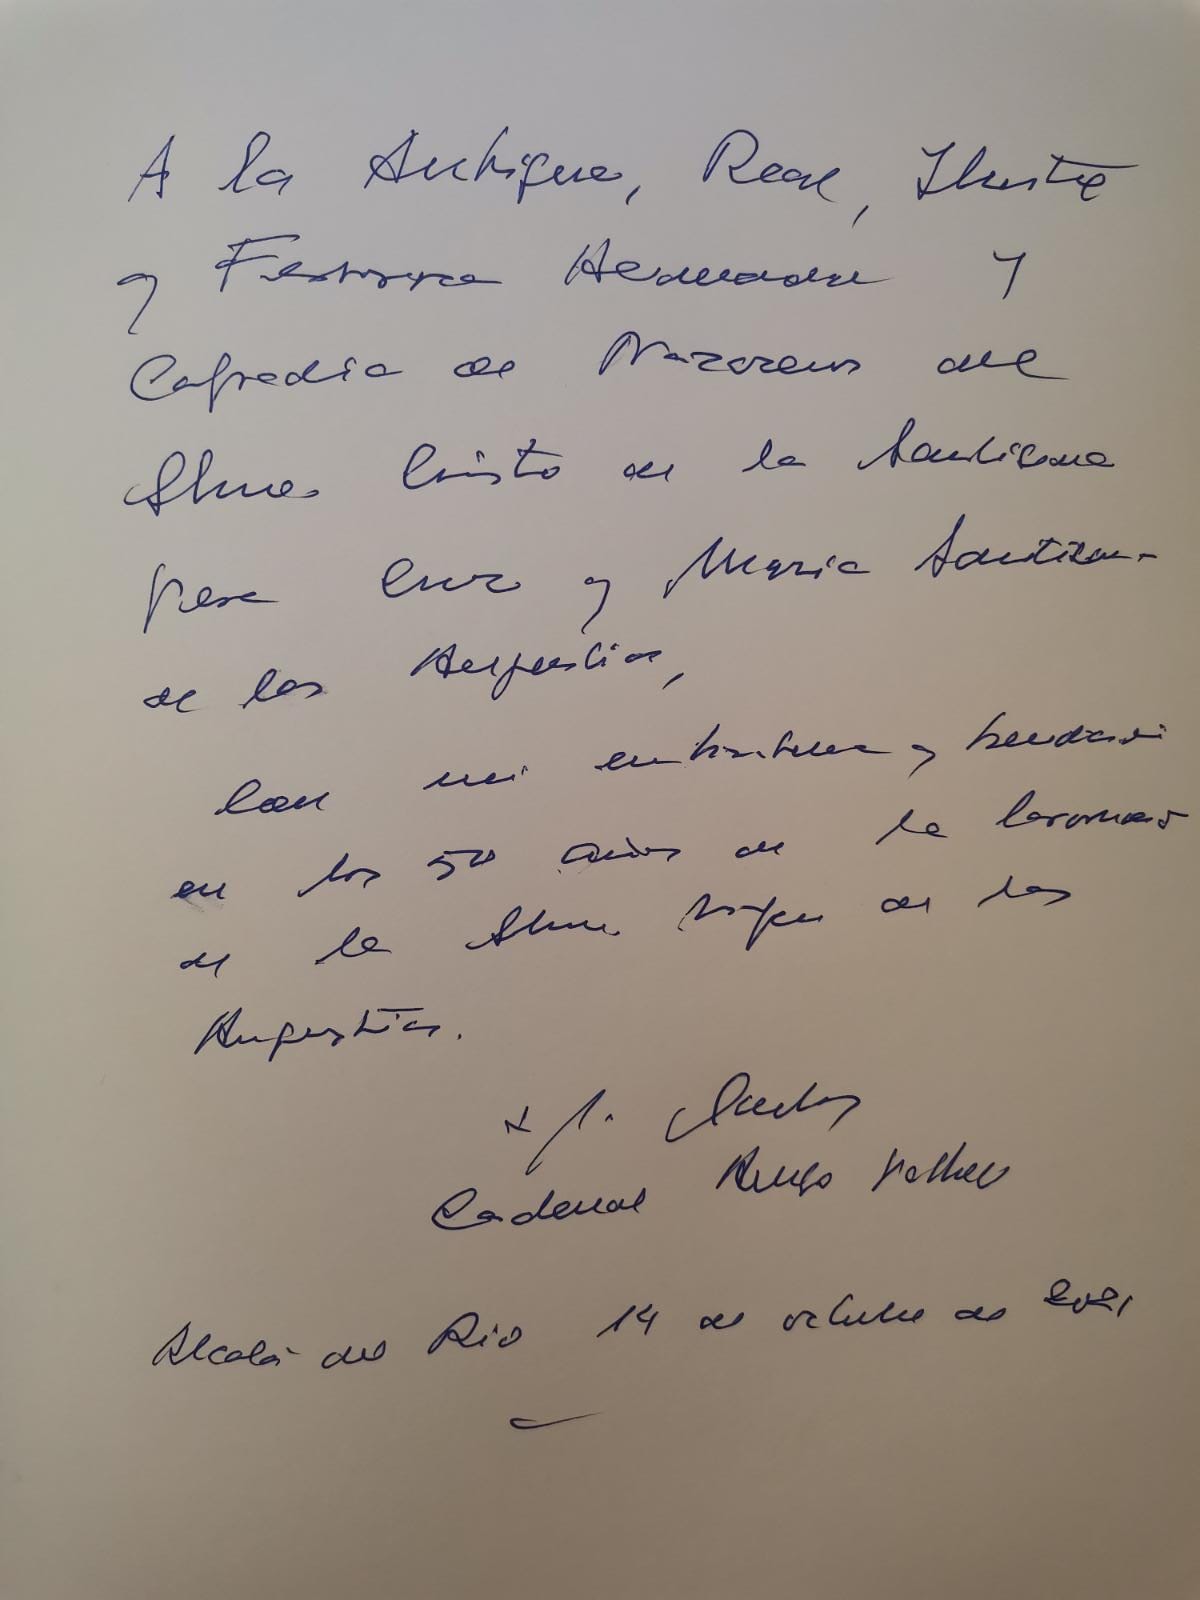 A la Antigua, Real, Ilustre
y Fervorosa Hermandad y
Cofradia de Nazarenos del
Stmo. Cristo de la Santisima
Vera Cruz y Maria Santisima
de las Angustias,
Con mi enhorabuena y bendición
en los 50 años de la Coronación
de la Stma. Virgen de las
Angustias.
+ J. Carlos
Cardenal Amigo Vallejo
Alcalá del Río 14 de octubre de 2021